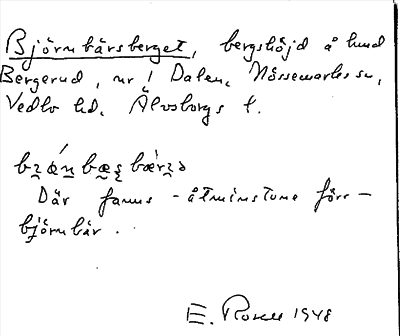 Björnbärsberget, bergshöjd å hmd
Bergerud, nr 1 Dalen, Nössemarks sn,
Vedbo hd. Älvsborgs l.
Där fanns - åtminstone förr -
björnbär.
E. 1948